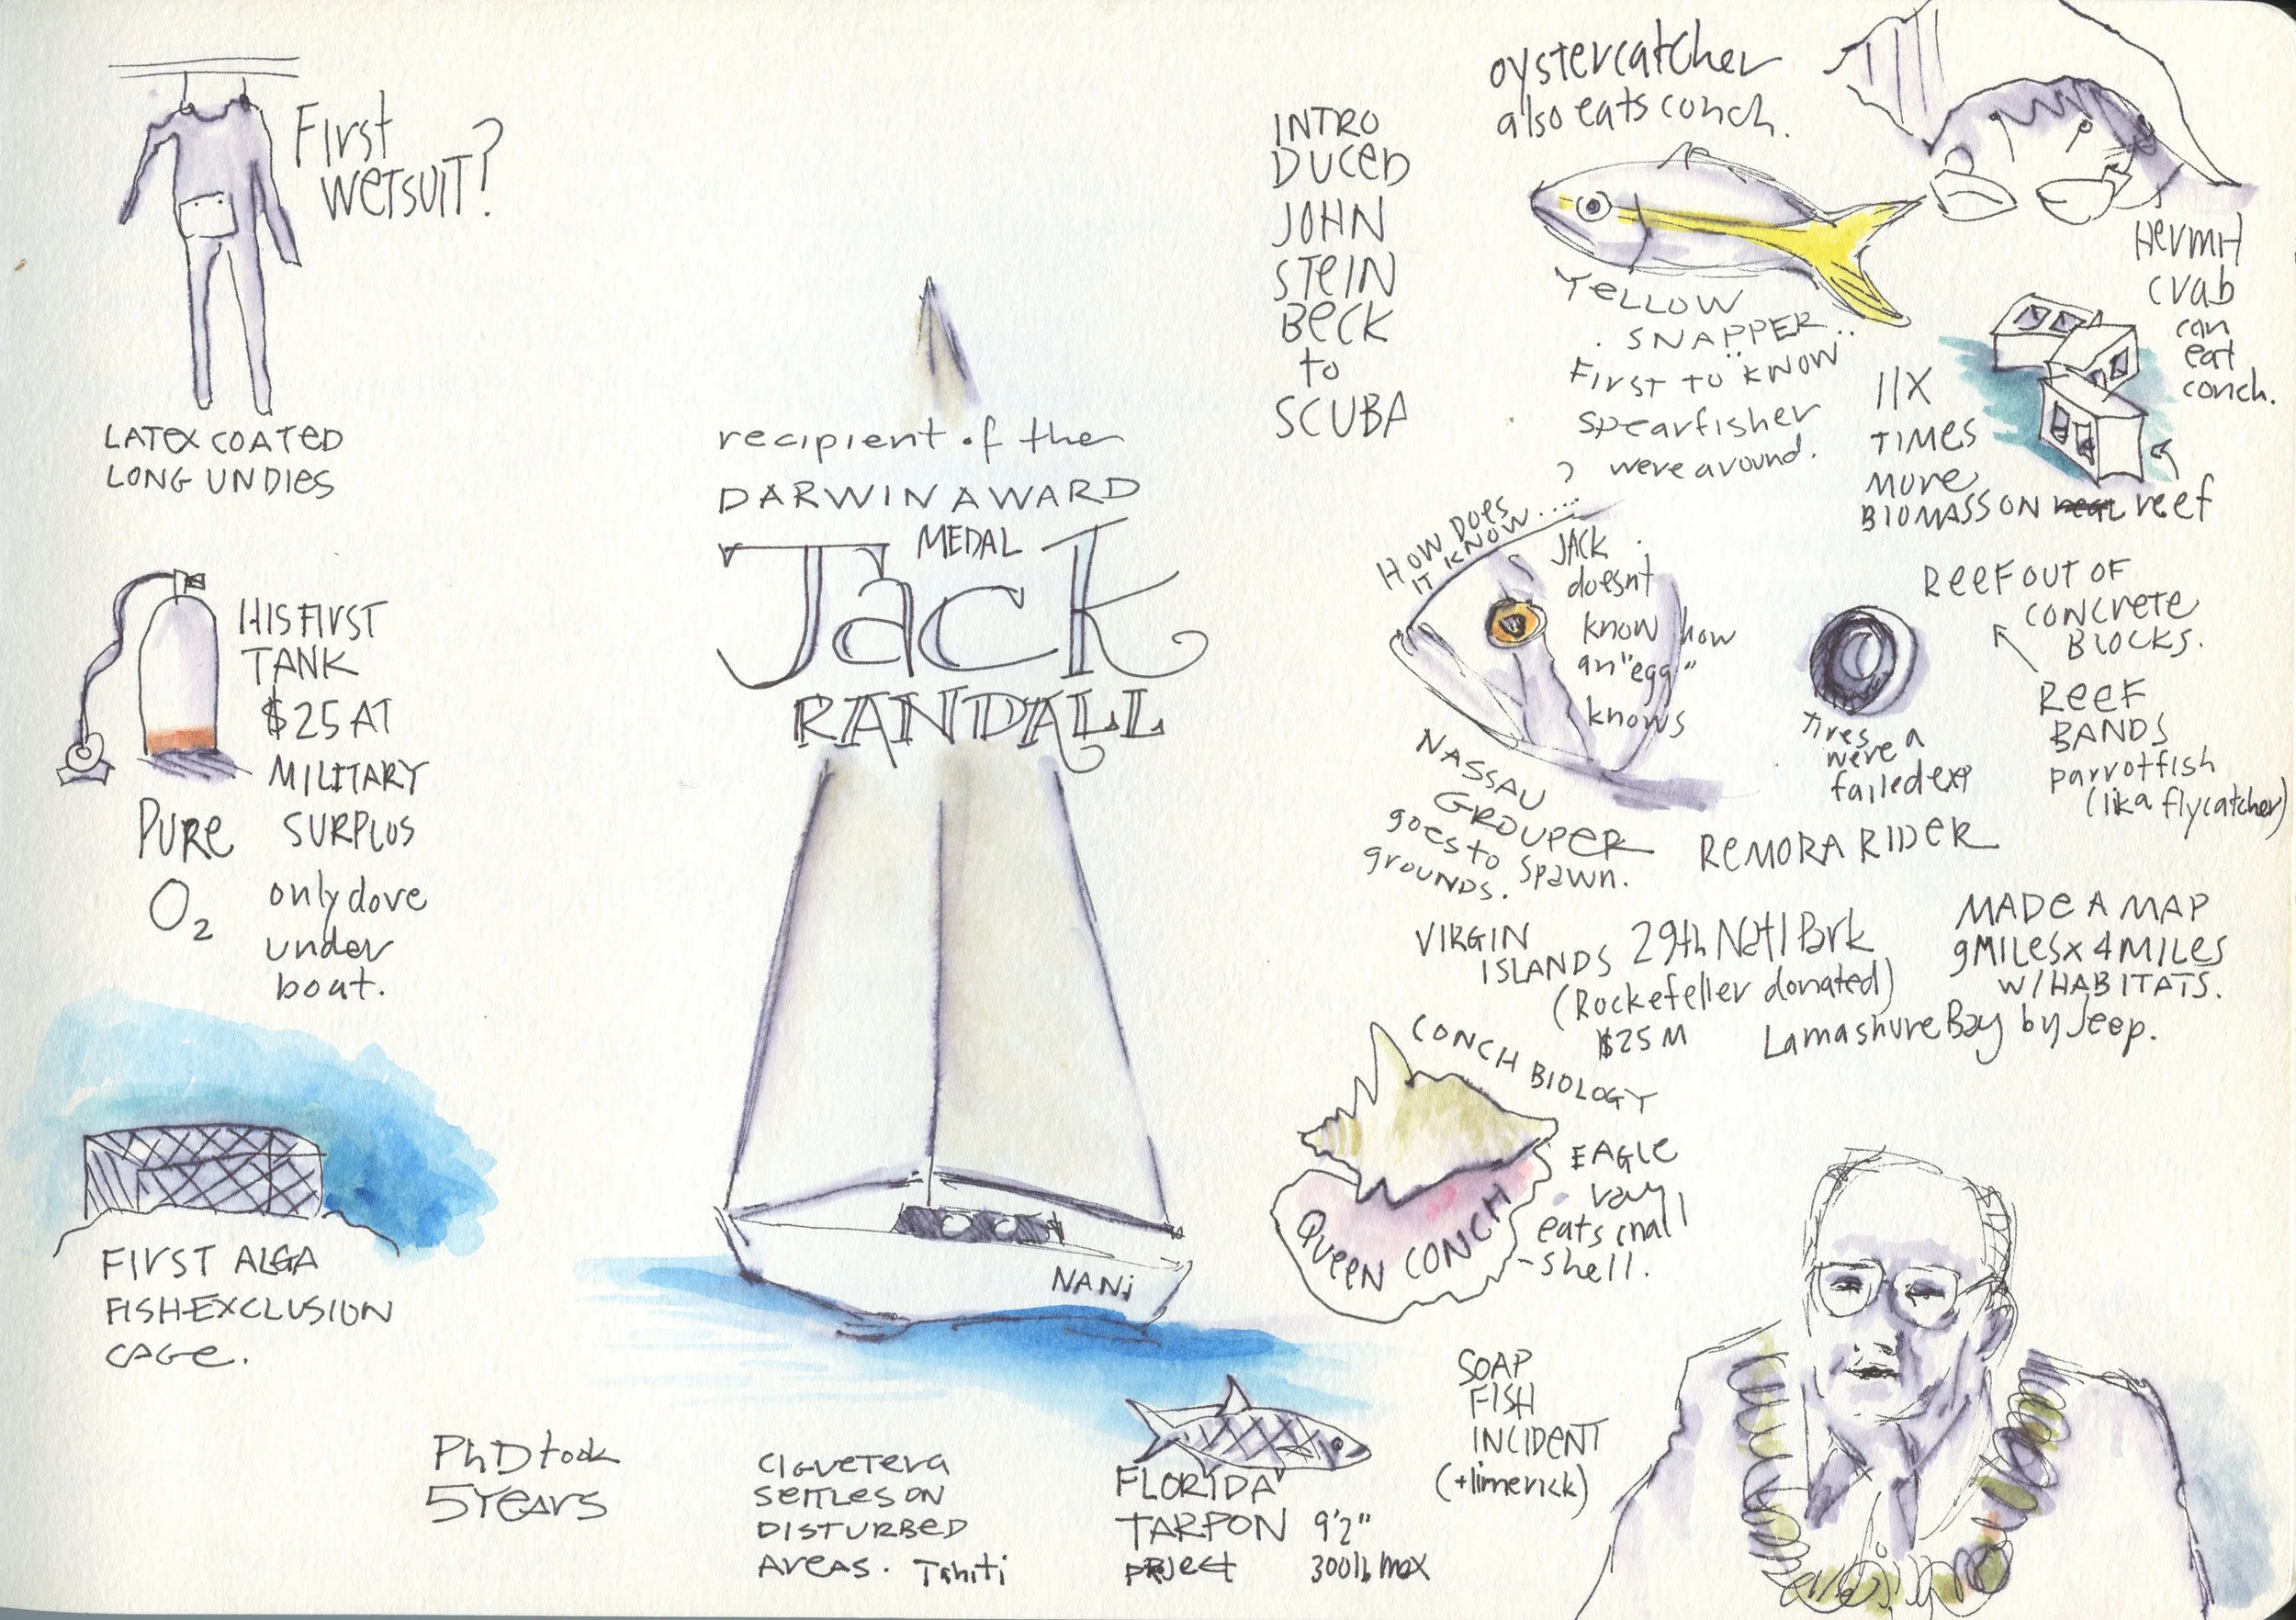 First
WETSUIT?
LATEX COATED
LONG UNDIES
HIS FIRST
TANK
$25 AT
MILITARY
SURPLUS
PURE
O2
only dove
under
boat.
FIRST ALGA
FISH-EXCLUSION
CAGE.
PhD took
5 YEARS
recipient of the
DARWIN AWARD
MEDAL
Jack
RANDALL
NANi
CIGUETERA
SETTLES ON
DISTURBED
AREAS. Tahiti
FLORIDA
TARPON 9'2"
PROJECT 300lb max
INTRO
DUCED
JOHN
STEIN
BECK
to
SCUBA
oystercatcher
also eats conch.
YELLOW
SNAPPER..
FIRST TO "KNOW
spearfisher
were around.
?
HOW DOES
IT KNOW....
JACK
doesnt
know how
an "egg"
knows
NASSAU
GROUPER
goes to spawn.
grounds.
HERMIT
crab
can
eat
conch.
11X
TIMES
MORE
BIOMASS ON reef
REEF OUT OF
CONCRETE
BLOCKS.
REEF
BANDS
parrotfish
(lika flycatcher)
Tires
were a
failed exp
REMORA RIDER
VIRGIN
ISLANDS 29th Natl Park
(Rockefeller donated)
$25 M
MADE A MAP
9 MILES x 4 MILES
W/HABITATS.
Lamashure Bay by Jeep.
CONCH BIOLOGY
QUEEN CONCH
EAGLE
ray
eats small
-shell.
SOAP
FISH
INCIDENT
(+limerick)